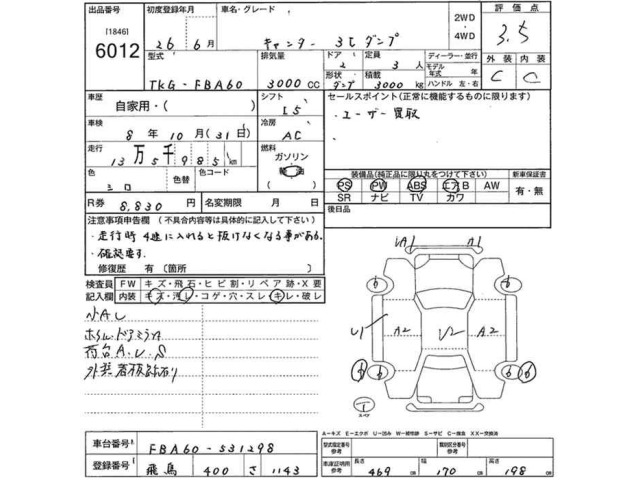 出品番号 初度登録年月 車名・グレード 2WD・4WD 評価点
[1846]
6012 26年 6月 キャンター 3t ダンプ 3.5
型式 排気量 ドア 定員 ディーラー・並行 外装 内装
TKG-FBA60 3000 CC 2 3人 モデル年式 年 C C
形状 積載 ハンドル 左・右
ダンプ 3000kg
車歴 シフト セールスポイント(正常に機能するものに限ります)
自家用・( ) I5 ・ユーザー買取
車検 冷房
8年10月(31日) AC
走行 燃料
13万5千985km ガソリン
色 色替 色コード 軽油
シロ
装備品(純正品に限り丸をつけて下さい) 新車保証書
PS PW ABS エアB AW 有・無
SR ナビ TV カワ
R券 8,830円 名変期限 月 日 後日品
注意事項申告欄(不具合内容等は具体的に記入して下さい)
・走行時4速に入れると抜けなくなる事がある。
・確認要す.
修復歴 有(箇所 )
検査員記入欄 FW キズ・飛石・ヒビ割・リペア跡・X要
内装 キズ・汚レ・コゲ・穴・スレ・キレ・破レ
小AU
荷台A.U.S
UA1 A1
U1 A2 U2 A2
A-キズ E-エクボ U-凹み W-補修跡 S-サビ C-腐食 XX-交換済
車台番号 FBA60-531298 型式指定番号 参考 類別区分番号 参考
登録番号 飛鳥 400 さ 1143 車庫証明用 参考 長さ 469 cm 幅 170 cm 高さ 198 cm